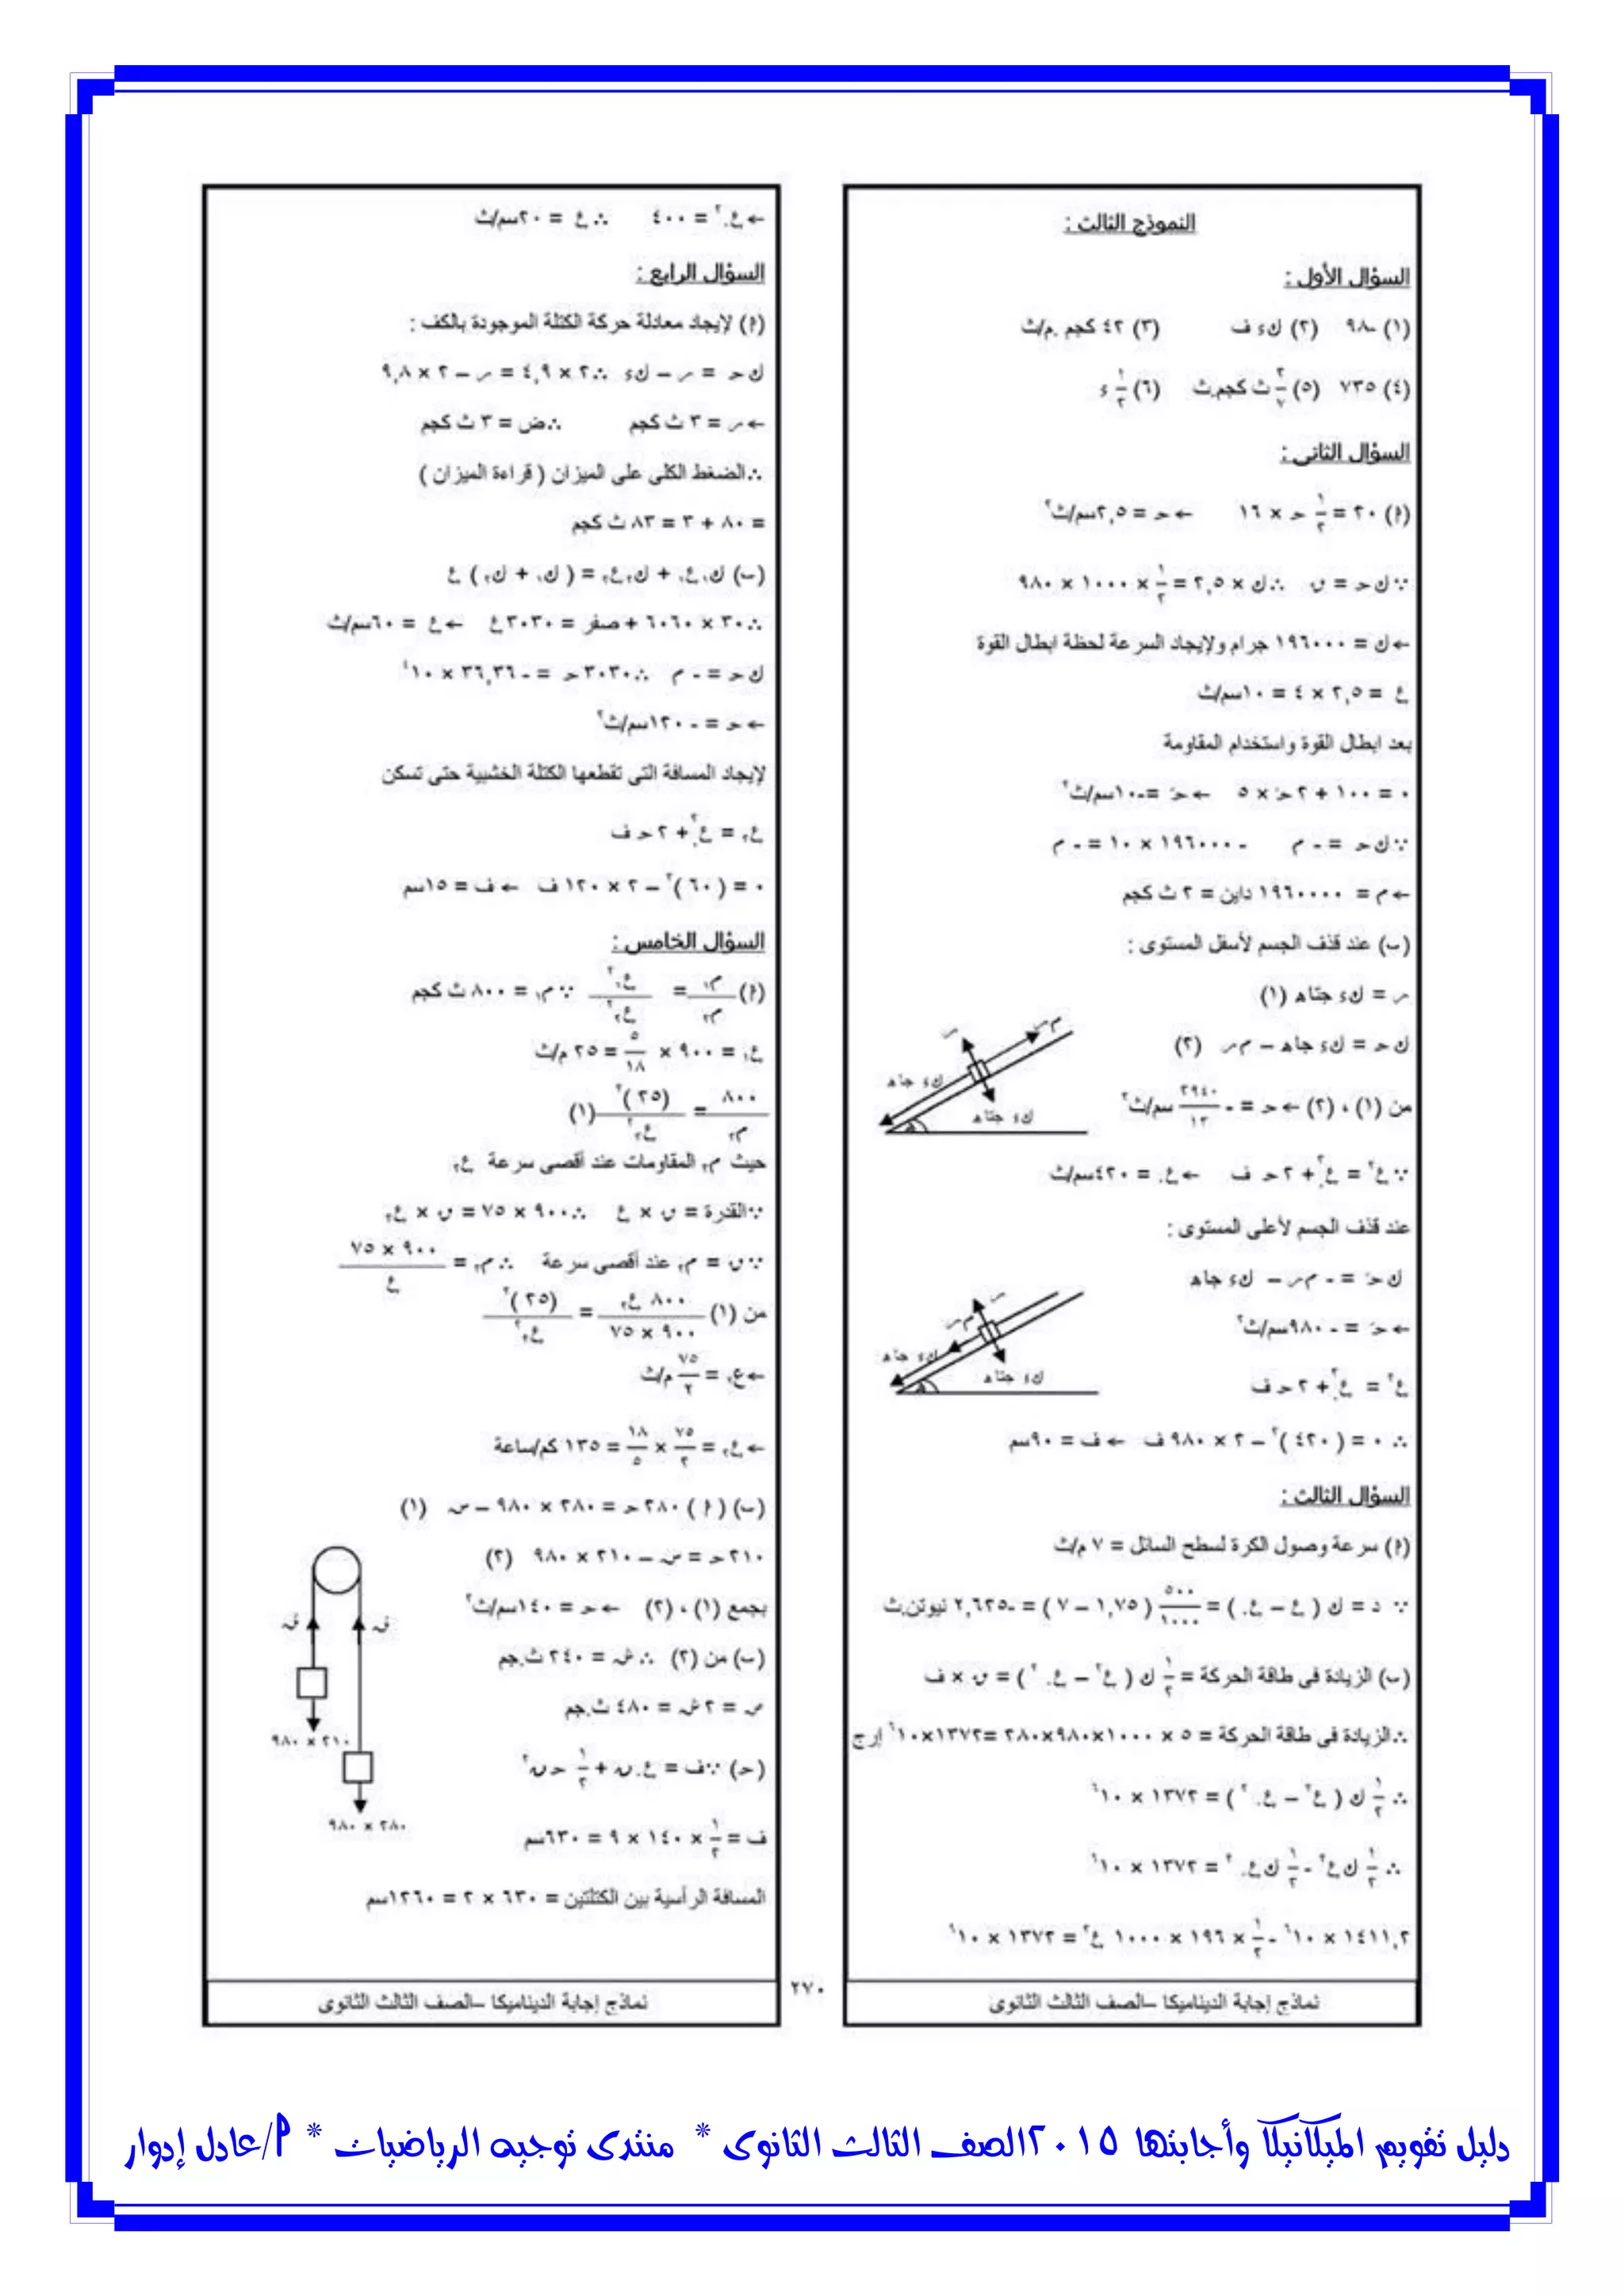 النموذج الثالث :
السؤال الأول :
(١) -٩٨ (٢) ك ء ف (٣) ٤٢ كجم .م/ث
(٤) ٧٣٥ (٥) ٢/٧ ث كجم.ث (٦) ١/٢ ء
السؤال الثانى :
(أ) ٢٠ = ١/٢ حـ × ١٦ ← حـ = ٢,٥سم/ث٢
∵ ك حـ = ق ∴ ك × ٢,٥ = ١/٢ × ١٠٠٠ × ٩٨٠
← ك = ١٩٦٠٠٠ جرام ولإيجاد السرعة لحظة ابطال القوة
ع = ٢,٥ × ٤ = ١٠سم/ث
بعد ابطال القوة واستخدام المقاومة
٠ = ١٠٠ + ٢ حـَ × ٥ ← حـَ = -١٠سم/ث٢
∵ ك حـ = - م - ١٩٦٠٠٠ × ١٠ = - م
← م = ١٩٦٠٠٠٠ داين = ٢ ث كجم
(ب) عند قذف الجسم لأسفل المستوى :
ر = ك ء جتا هـ (١)
ك حـ = ك ء جا هـ – م ر (٢)
من (١) ، (٢) ← حـ = - ٢٩٤٠/١٣ سم/ث٢
م ر
ر
ك ء جا هـ
ك ء جتا هـ
∵ ع٢ = ع.٢ + ٢ حـ ف ← ع. = ٤٢٠سم/ث
عند قذف الجسم لأعلى المستوى :
ك حـَ = - م ر – ك ء جا هـ
← حـَ = - ٩٨٠سم/ث٢
ر
م ر
ك ء جا هـ
ك ء جتا هـ
ع٢ = ع.٢ + ٢ حـ ف
∴ ٠ = (٤٢٠)٢ – ٢ × ٩٨٠ ف ← ف = ٩٠سم
السؤال الثالث :
(أ) سرعة وصول الكرة لسطح السائل = ٧ م/ث
∵ د = ك ( ع – ع. ) = ٥٠٠/١٠٠٠ ( ١,٧٥ – ٧ ) = -٢,٦٢٥ نيوتن.ث
(ب) الزيادة فى طاقة الحركة = ١/٢ ك ( ع٢ – ع.٢ ) = ق × ف
∴ الزيادة فى طاقة الحركة = ٥ × ١٠٠٠×٩٨٠×٢٨٠ =١٣٧٢×١٠٦ إرج
∴ ١/٢ ك ( ع٢ – ع.٢ ) = ١٣٧٢ × ١٠٦
∴ ١/٢ ك ع٢ - ١/٢ ك ع.٢ = ١٣٧٢ × ١٠٦
١٤١١,٢ × ١٠٦ - ١/٢ × ١٩٦ × ١٠٠٠ ع٢ = ١٣٧٢ × ١٠٦
نماذج إجابة الديناميكا –الصف الثالث الثانوى
← ع.٢ = ٤٠٠ ∴ ع = ٢٠سم/ث
السؤال الرابع :
(أ) لإيجاد معادلة حركة الكتلة الموجودة بالكف :
ك حـ = ر – ك ء ∴ ٢ × ٤,٩ = ر – ٢ × ٩,٨
← ر = ٣ ث كجم ∴ ض = ٣ ث كجم
∴ الضغط الكلى على الميزان ( قراءة الميزان )
= ٨٠ + ٣ = ٨٣ ث كجم
(ب) ك١ ع١ + ك٢ ع٢ = ( ك١ + ك٢ ) ع
∴ ٣٠ × ٦٠٦٠ + صفر = ٣٠٣٠ع ← ع = ٦٠سم/ث
ك حـ = - م ∴ ٣٠٣٠ حـ = - ٣٦,٣٦ × ١٠٤
← حـ = - ١٢٠سم/ث٢
لإيجاد المسافة التى تقطعها الكتلة الخشبية حتى تسكن
ع٢ = ع.٢ + ٢ حـ ف
٠ = ( ٦٠ )٢ – ٢ × ١٢٠ ف ← ف = ١٥سم
السؤال الخامس :
(أ) م١/م٢ = ع١٢/ع٢٢ ∵ م١ = ٨٠٠ ث كجم
ع١ = ٩٠٠ × ٥/١٨ = ٢٥ م/ث
٨٠٠/م٢ = (٢٥)٢/ع٢٢ (١)
حيث م٢ المقاومات عند أقصى سرعة ع٢
∵ القدرة = ق × ع ∴ ٩٠٠ × ٧٥ = ق × ع٢
∵ ق = م٢ عند أقصى سرعة ∴ م٢ = ٩٠٠ × ٧٥/ع
من (١) ٨٠٠ ع٢/٩٠٠ × ٧٥ = (٢٥)٢/ع٢٢
← ع٢ = ٧٥/٢ م/ث
← ع٢ = ٧٥/٢ × ١٨/٥ = ١٣٥ كم/ساعة
(ب) ( أ ) ٢٨٠ حـ = ٢٨٠ × ٩٨٠ – س (١)
٢١٠ حـ = س – ٢١٠ × ٩٨٠ (٢)
بجمع (١) ، (٢) ← حـ = ١٤٠سم/ث٢
(ب) من (٢) ∴ ش = ٢٤٠ ث.جم
ص = ٢ ش = ٤٨٠ ث.جم
(حـ) ∵ ف = ع. ن + ١/٢ حـ ن٢
ف = ١/٢ × ١٤٠ × ٩ = ٦٣٠سم
المسافة الرأسية بين الكتلتين = ٦٣٠ × ٢ = ١٢٦٠سم
٢١٠ × ٩٨٠
٢٨٠ × ٩٨٠
نماذج إجابة الديناميكا –الصف الثالث الثانوى
٢٧٠
دليل تقويم الميكانيكا وأجابتها ٢٠١٥ الصف الثالث الثانوى * منتدى توجيه الرياضيات * م/عادل إدوار